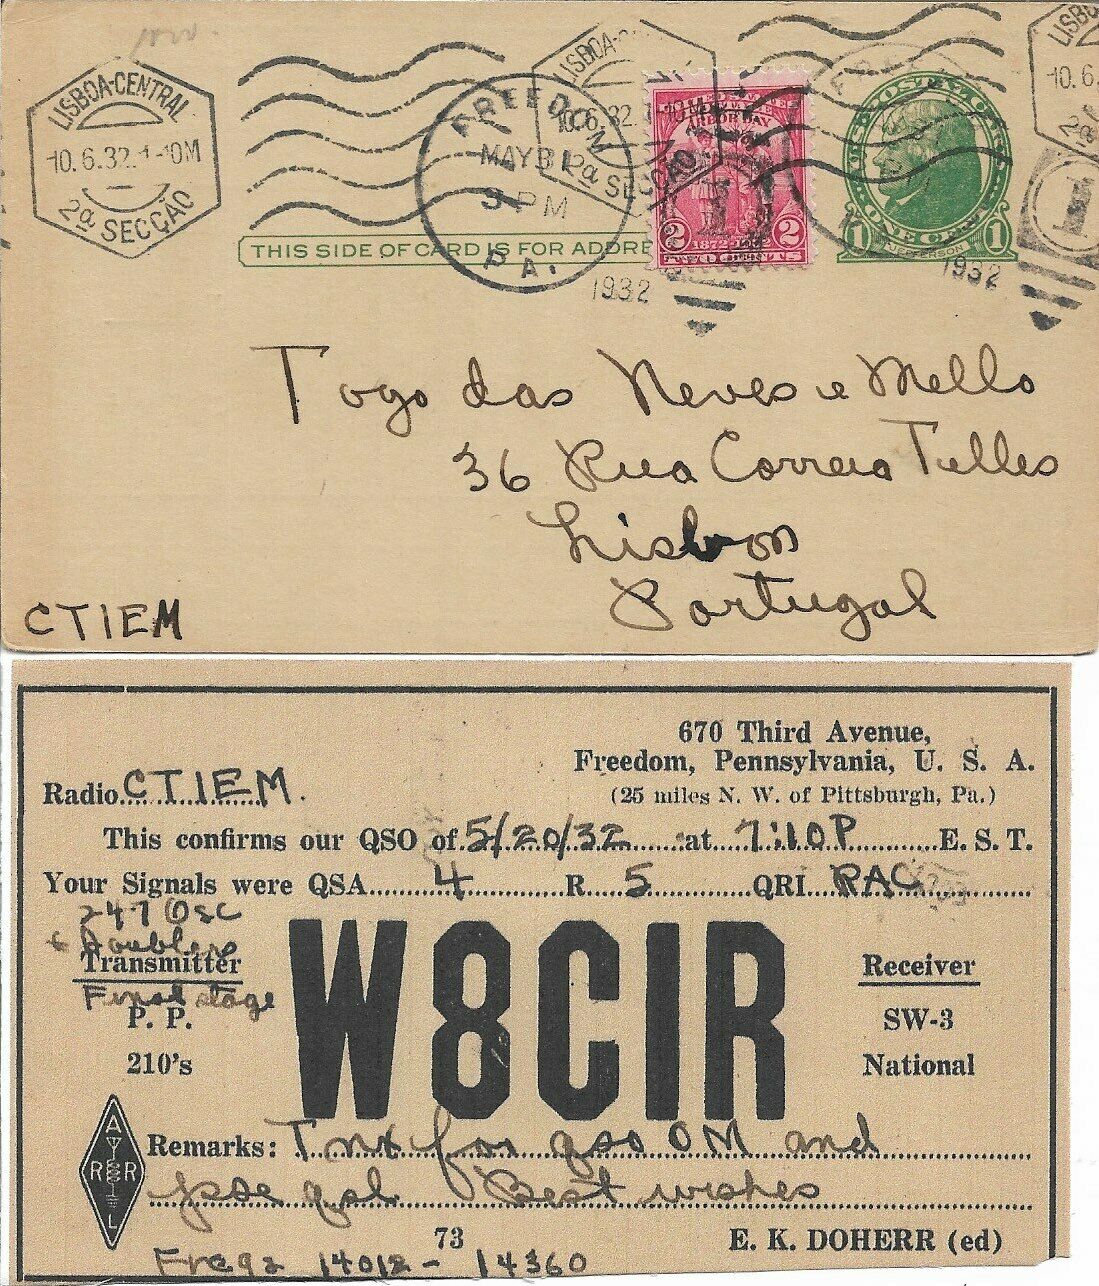 LISBOA-CENTRAL
10.6.32.1-10M
2ª SECÇÃO
FREEDOM
MAY 31
3 PM
PA.
1932
LISBOA
10.6.32.
2ª SECÇÃO
ARBOR DAY
2 1872 2
TWO CENTS
U.S. POSTAL CARD
1 ONE CENT 1
JEFFERSON
1932
LISB
10.6.
2ª
THIS SIDE OF CARD IS FOR ADDRE
Togo das Neves e Mello
36 Rua Correia Telles
Lisbon
Portugal
CT1EM
670 Third Avenue,
Freedom, Pennsylvania, U. S. A.
(25 miles N. W. of Pittsburgh, Pa.)
Radio CT1EM.
This confirms our QSO of 5/20/32 at 7:10P E. S. T.
Your Signals were QSA 4 R 5 QRI PAC
247 Osc
& Doublers
Transmitter
Final stage
P. P.
210's
W8CIR
Receiver
SW-3
National
ARRL
Remarks: Tnx for qso OM and
pse qsl Best wishes
73 E. K. DOHERR (ed)
Freqs 14012 - 14360